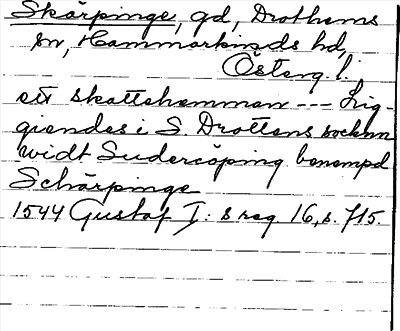 Skärpinge, gd, Drothems
sn, Hammarkinds hd,
Österg. l.
ett skattehemman --- Lig-
giendes i S. Drottens socknn
widt Sudercöping benempd
Schärpinge
1544 Gustaf I: s reg 16, s. 715.